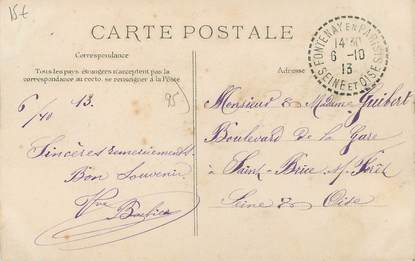 15€
CARTE POSTALE
Correspondance
Tous les pays étrangers n'acceptent pas la
correspondance au recto. se renseigner à la Poste.
Adresse
FONTENAY EN PARISIS
14 30
6 -10
13
SEINE ET OISE
95
6/10 13.
Sincères remerciements
Bon Souvenir
Vve
Monsieur & Madame Guibert
Boulevard de la Gare
à Saint-Brice s/s Forêt
Seine & Oise